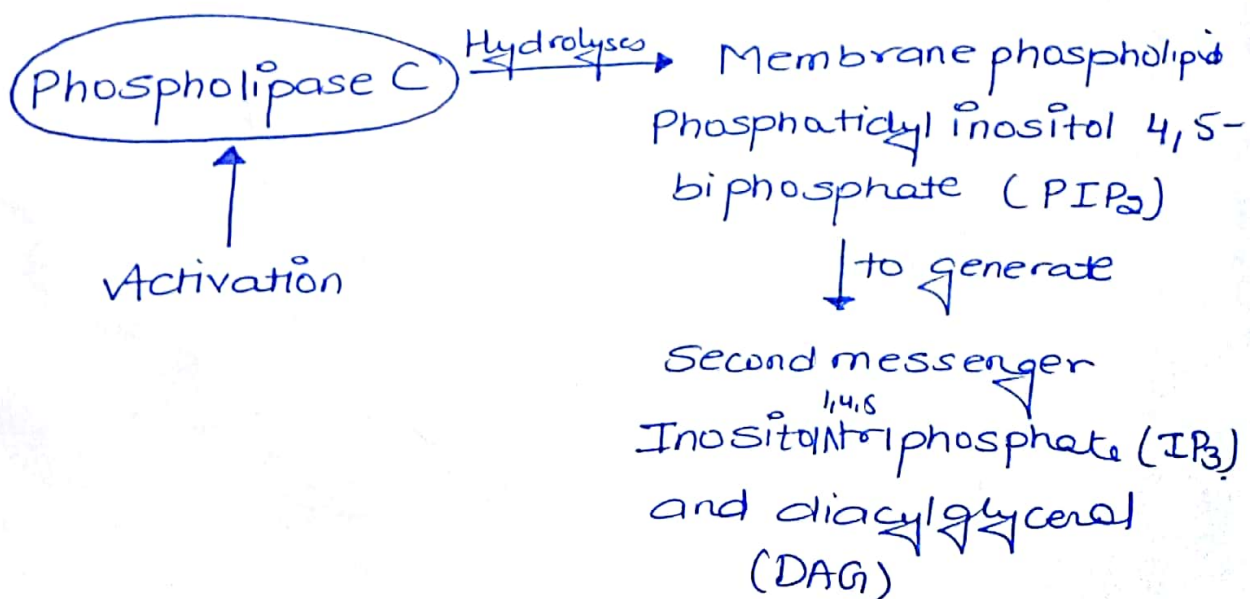 Phospholipase C
Hydrolyses
Membrane phospholipid
Phosphatidyl inositol 4,5-
biphosphate (PIP2)
Activation
to generate
Second messenger
1,4,5
Inositol triphosphate (IP3)
and diacylglycerol
(DAG)